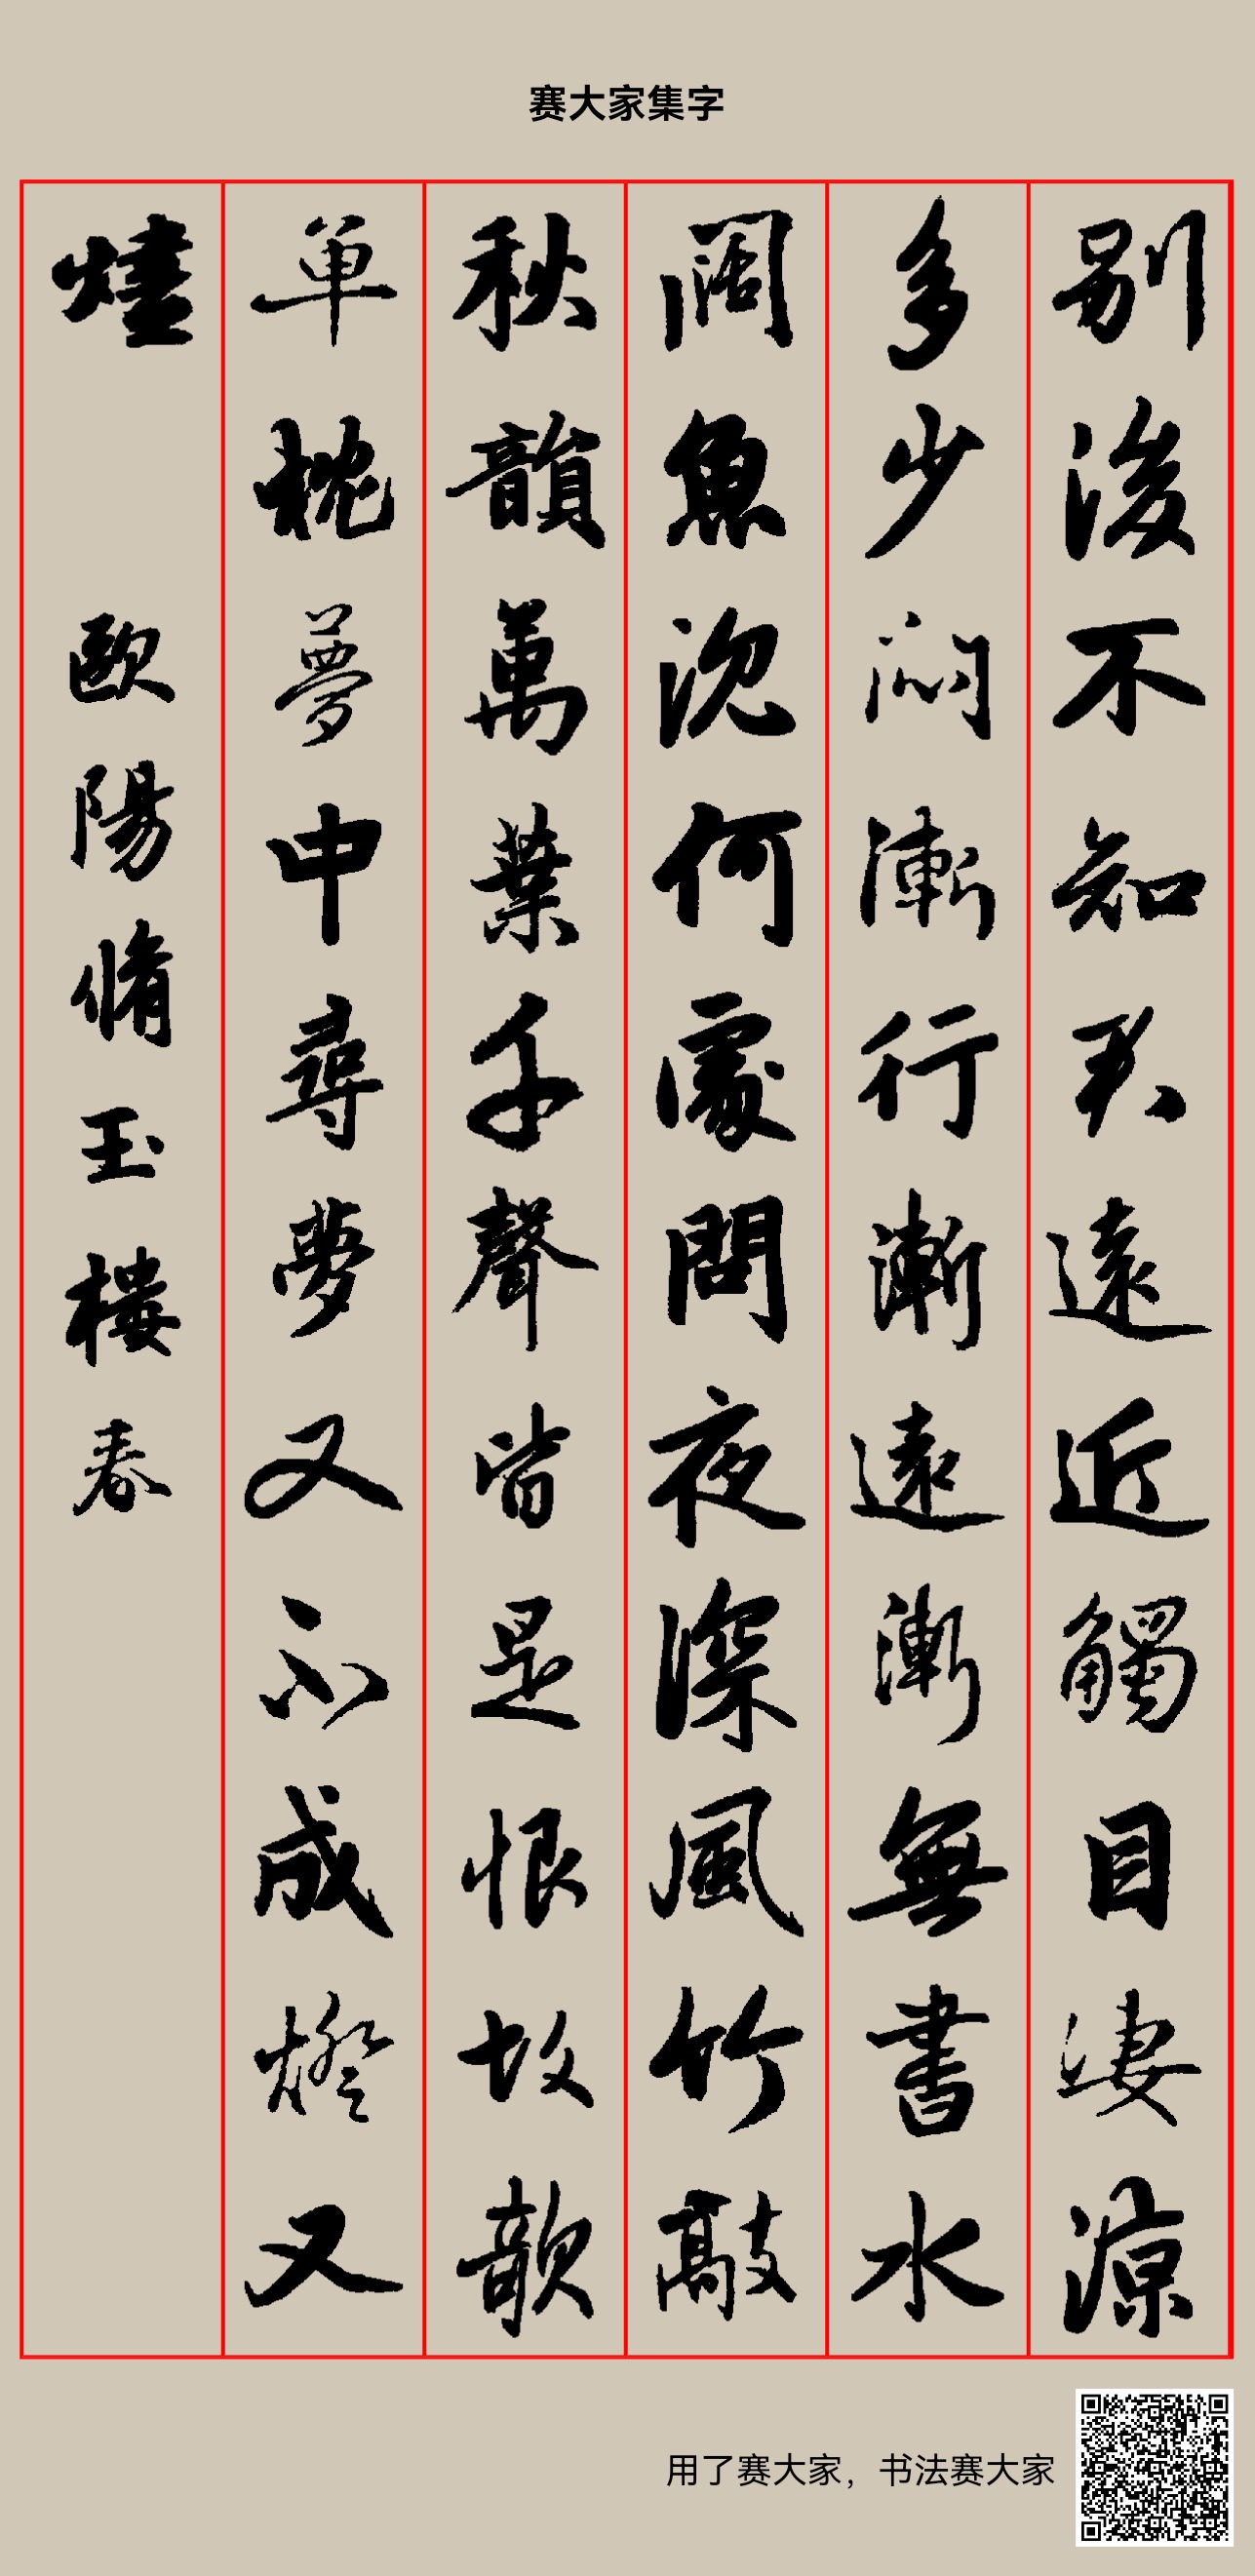 赛大家集字
别後不知君遠近觸目淒涼
多少悶漸行漸遠漸無書水
闊魚沈何處問夜深風竹敲
秋韻萬葉千聲皆是恨故欹
單枕夢中尋夢又不成燈又
燼 歐陽脩玉樓春
用了赛大家，书法赛大家